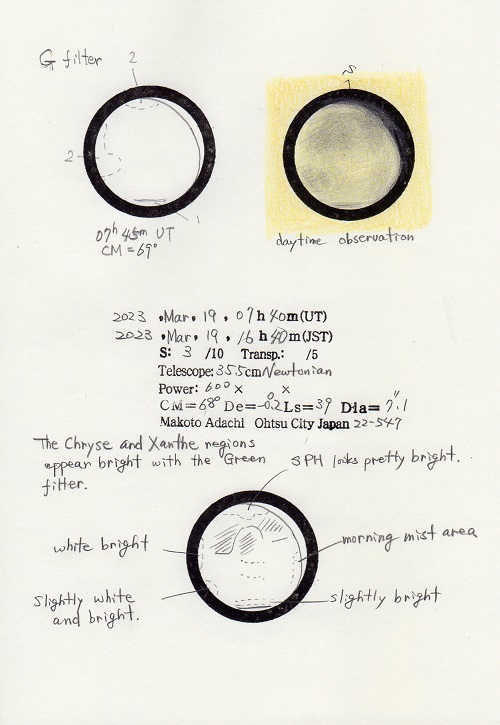 G filter
2
S
2
1
07h 45m UT
CM = 69°
daytime observation
2023 . Mar. 19 . 07 h 40 m(UT)
2023 . Mar. 19 . 16 h 40 m(JST)
S: 3 /10 Transp.: /5
Telescope: 35.5cm Newtonian
Power: 600 × ×
CM = 68° De = -0.2° Ls = 39 Dia = 7".1
Makoto Adachi Ohtsu City Japan 22-547
The Chryse and Xanthe regions
appear bright with the Green
filter.
SPH looks pretty bright.
white bright
morning mist area
Slightly white
and bright.
slightly bright